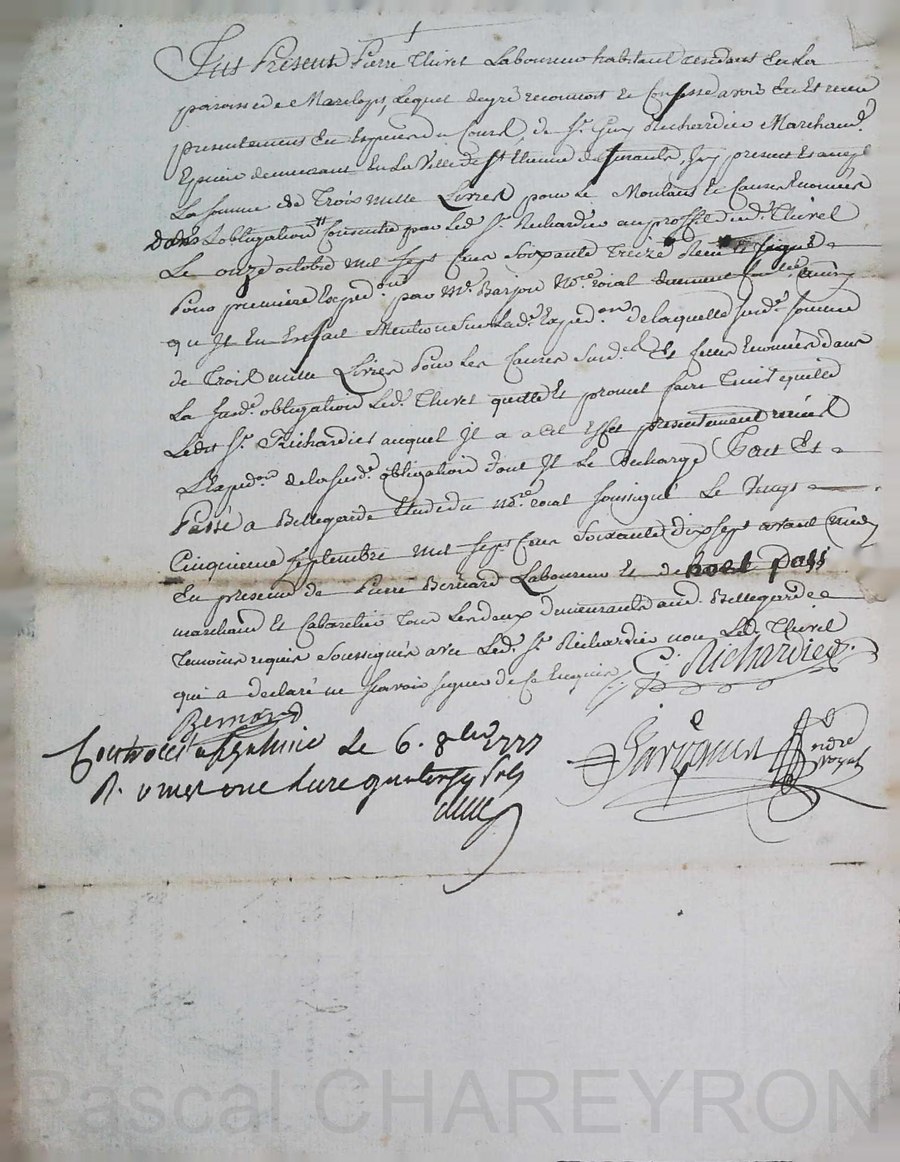 Fus Présent Pierre Thivel Laboureur habitant residant en la
paroisse de Marclopt, Lequel de gré reconnoit et Confesse avoir Eu et receu
presentement En Espèces du Cours, de Sr. Guy Richardier Marchand
Epicier demeurant En la Ville de St Etienne de furault, Jcy present et
La somme de Trois mille Livres pour le Montant Et Causes Enoncées
dans Lobligation Consentie par Led. Sr. Richardier au proffit dud. Thivel
Le onze octobre mil sept cens soixante treize
Pour premiere Exped.on par Me. Barjon No.re roial
qu'Jl En Er fait Mention sur lad. Exped.on de laquelle susd.e somme
de Trois mille Livres Pour les Causes susd.es Et
La susd.e obligation Led. Thivel quitte Et promet faire Tenir quitte
Ledit Sr. Richardier auquel Jl a a cet Effet presentement remis
L'exped.on de la susd.e obligation dont Jl Le decharge fait Et
Passé a Bellegarde Etude du No.re roial soussigné Le Vingt
Cinquieme septembre mil sept cens soixante dix sept avant midy
En presence de Pierre Bernard Laboureur Et de noel pass
marchand Et Cabaretier Tous Les deux demeurants aud. Bellegarde
Temoins requis soussignés avec Led. Sr. Richardier non Led. Thivel
qui a declaré ne sçavoir signer de ce Enquis G. Richardier
Bernard
Controllé a Le 6. 8bre 1777
R. une livre quatorze sols
Pascal CHAREYRON